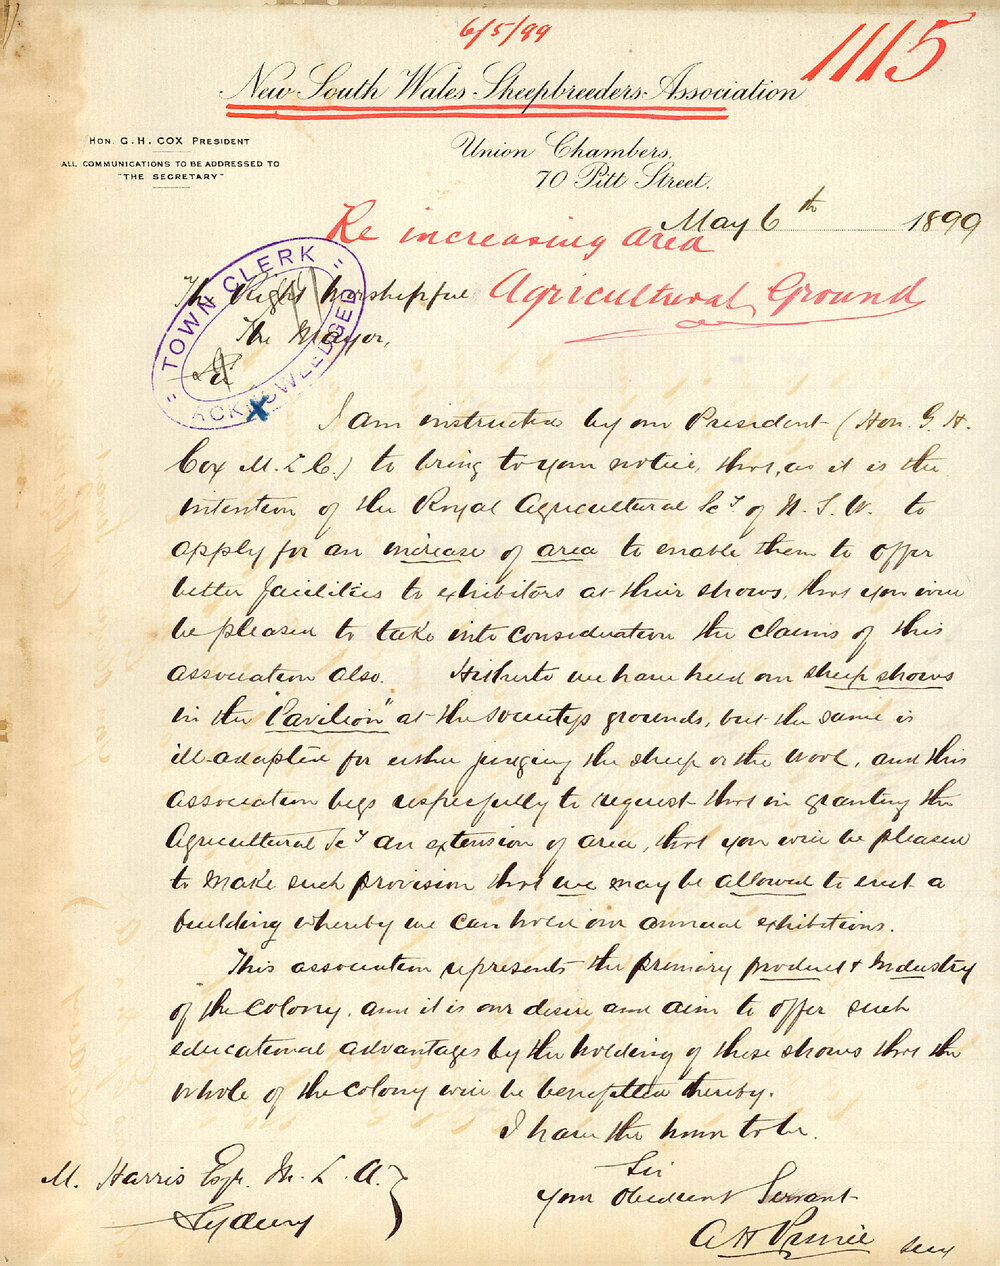 6/5/99
1115
New South Wales Sheepbreeders Association
HON. G. H. COX PRESIDENT
ALL COMMUNICATIONS TO BE ADDRESSED TO
"THE SECRETARY"
Union Chambers,
70 Pitt Street.
May 6th 1899
Re increasing area
Agricultural Ground
"TOWN CLERK"
ACKNOWLEDGED
The Right Worshipful
The Mayor,
Sir
I am instructed by our President (Hon. G. H.
Cox M.L.C.) to bring to your notice, that, as it is the
intention of the Royal Agricultural Scy of N. S. W. to
apply for an increase of area to enable them to offer
better facilities to exhibitors at their shows, that you will
be pleased to take into consideration the claims of this
association also. Hitherto we have held our sheep shows
in the "Pavilion" at the society's grounds, but the same is
ill-adapted for either judging the sheep or the wool, and this
association begs respectfully to request that in granting the
Agricultural Scy an extension of area, that you will be pleased
to make such provision that we may be allowed to erect a
building whereby we can hold our annual exhibitions.
This association represents the primary product & industry
of the colony, and it is our desire and aim to offer such
educational advantages by the holding of these shows that the
whole of the colony will be benefitted thereby.
I have the honor to be.
Sir
your Obedient Servant
M. Harris Esqr. M. L. A.
Sydney
A H Prince